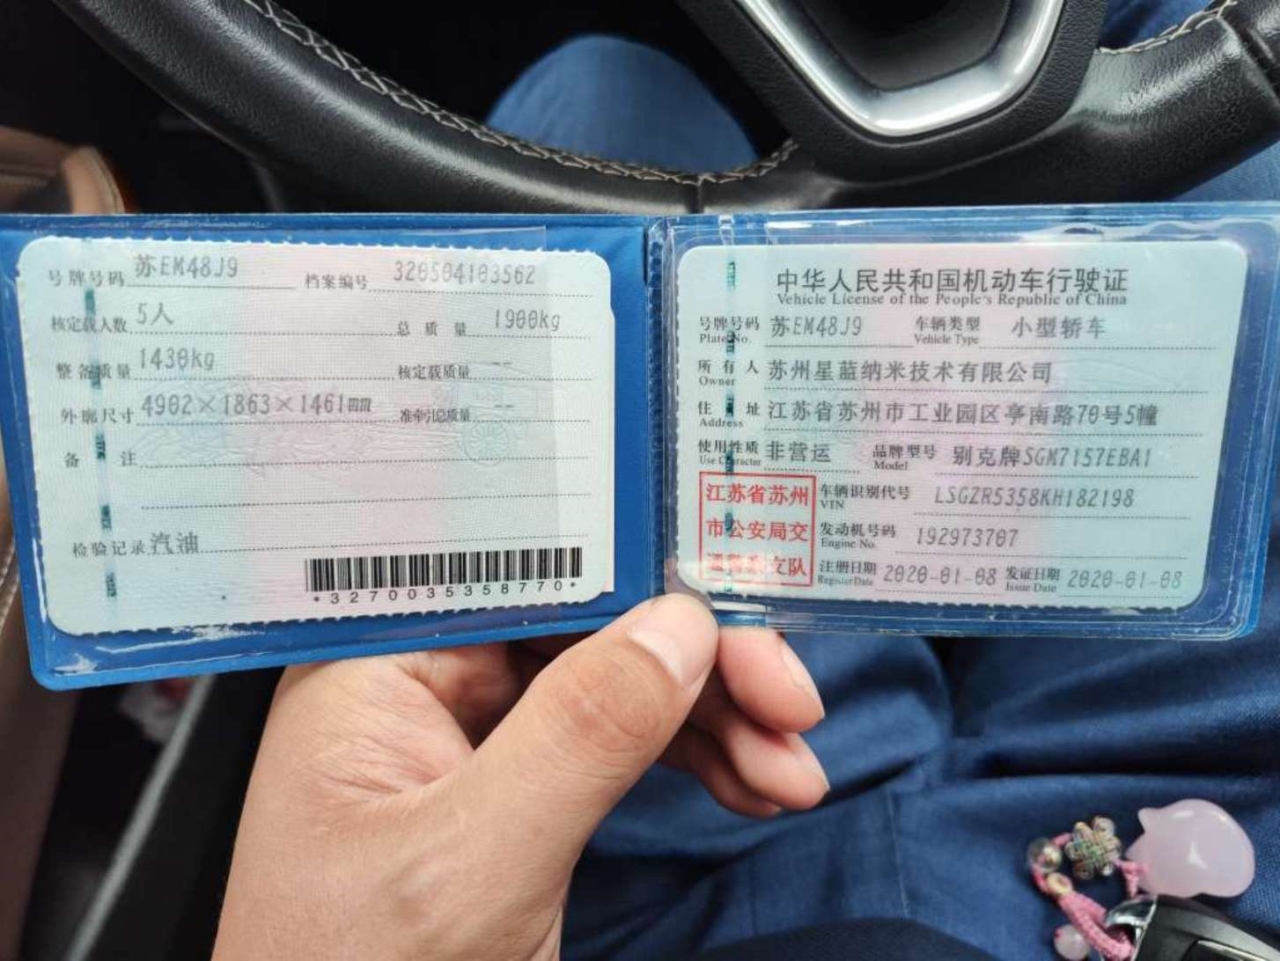 号牌号码 苏EM48J9 档案编号 320504103562
核定载人数 5人 总质量 1900kg
整备质量 1430kg 核定载质量 --
外廓尺寸 4902×1863×1461mm 准牵引总质量 --
备注
检验记录 汽油
*3270035358770*
中华人民共和国机动车行驶证
Vehicle License of the People's Republic of China
号牌号码 苏EM48J9 车辆类型 小型轿车
Plate No. Vehicle Type
所有人 苏州星蓝纳米技术有限公司
Owner
住址 江苏省苏州市工业园区亭南路70号5幢
Address
使用性质 非营运 品牌型号 别克牌SGM7157EBA1
Use Character Model
江苏省苏州
市公安局交
通警察支队
车辆识别代号 LSGZR5358KH182198
VIN
发动机号码 192973707
Engine No.
注册日期 2020-01-08 发证日期 2020-01-08
Register Date Issue Date